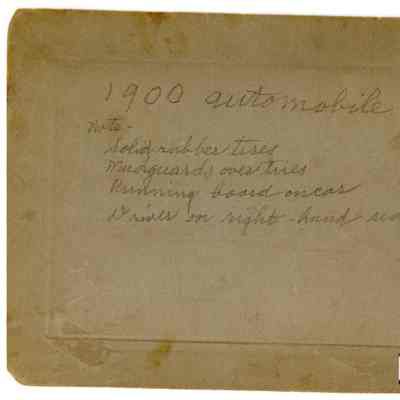 1900 automobile
Note-
Solid rubber tires
Mudguards over tires
Running board on car
Driver on right-hand